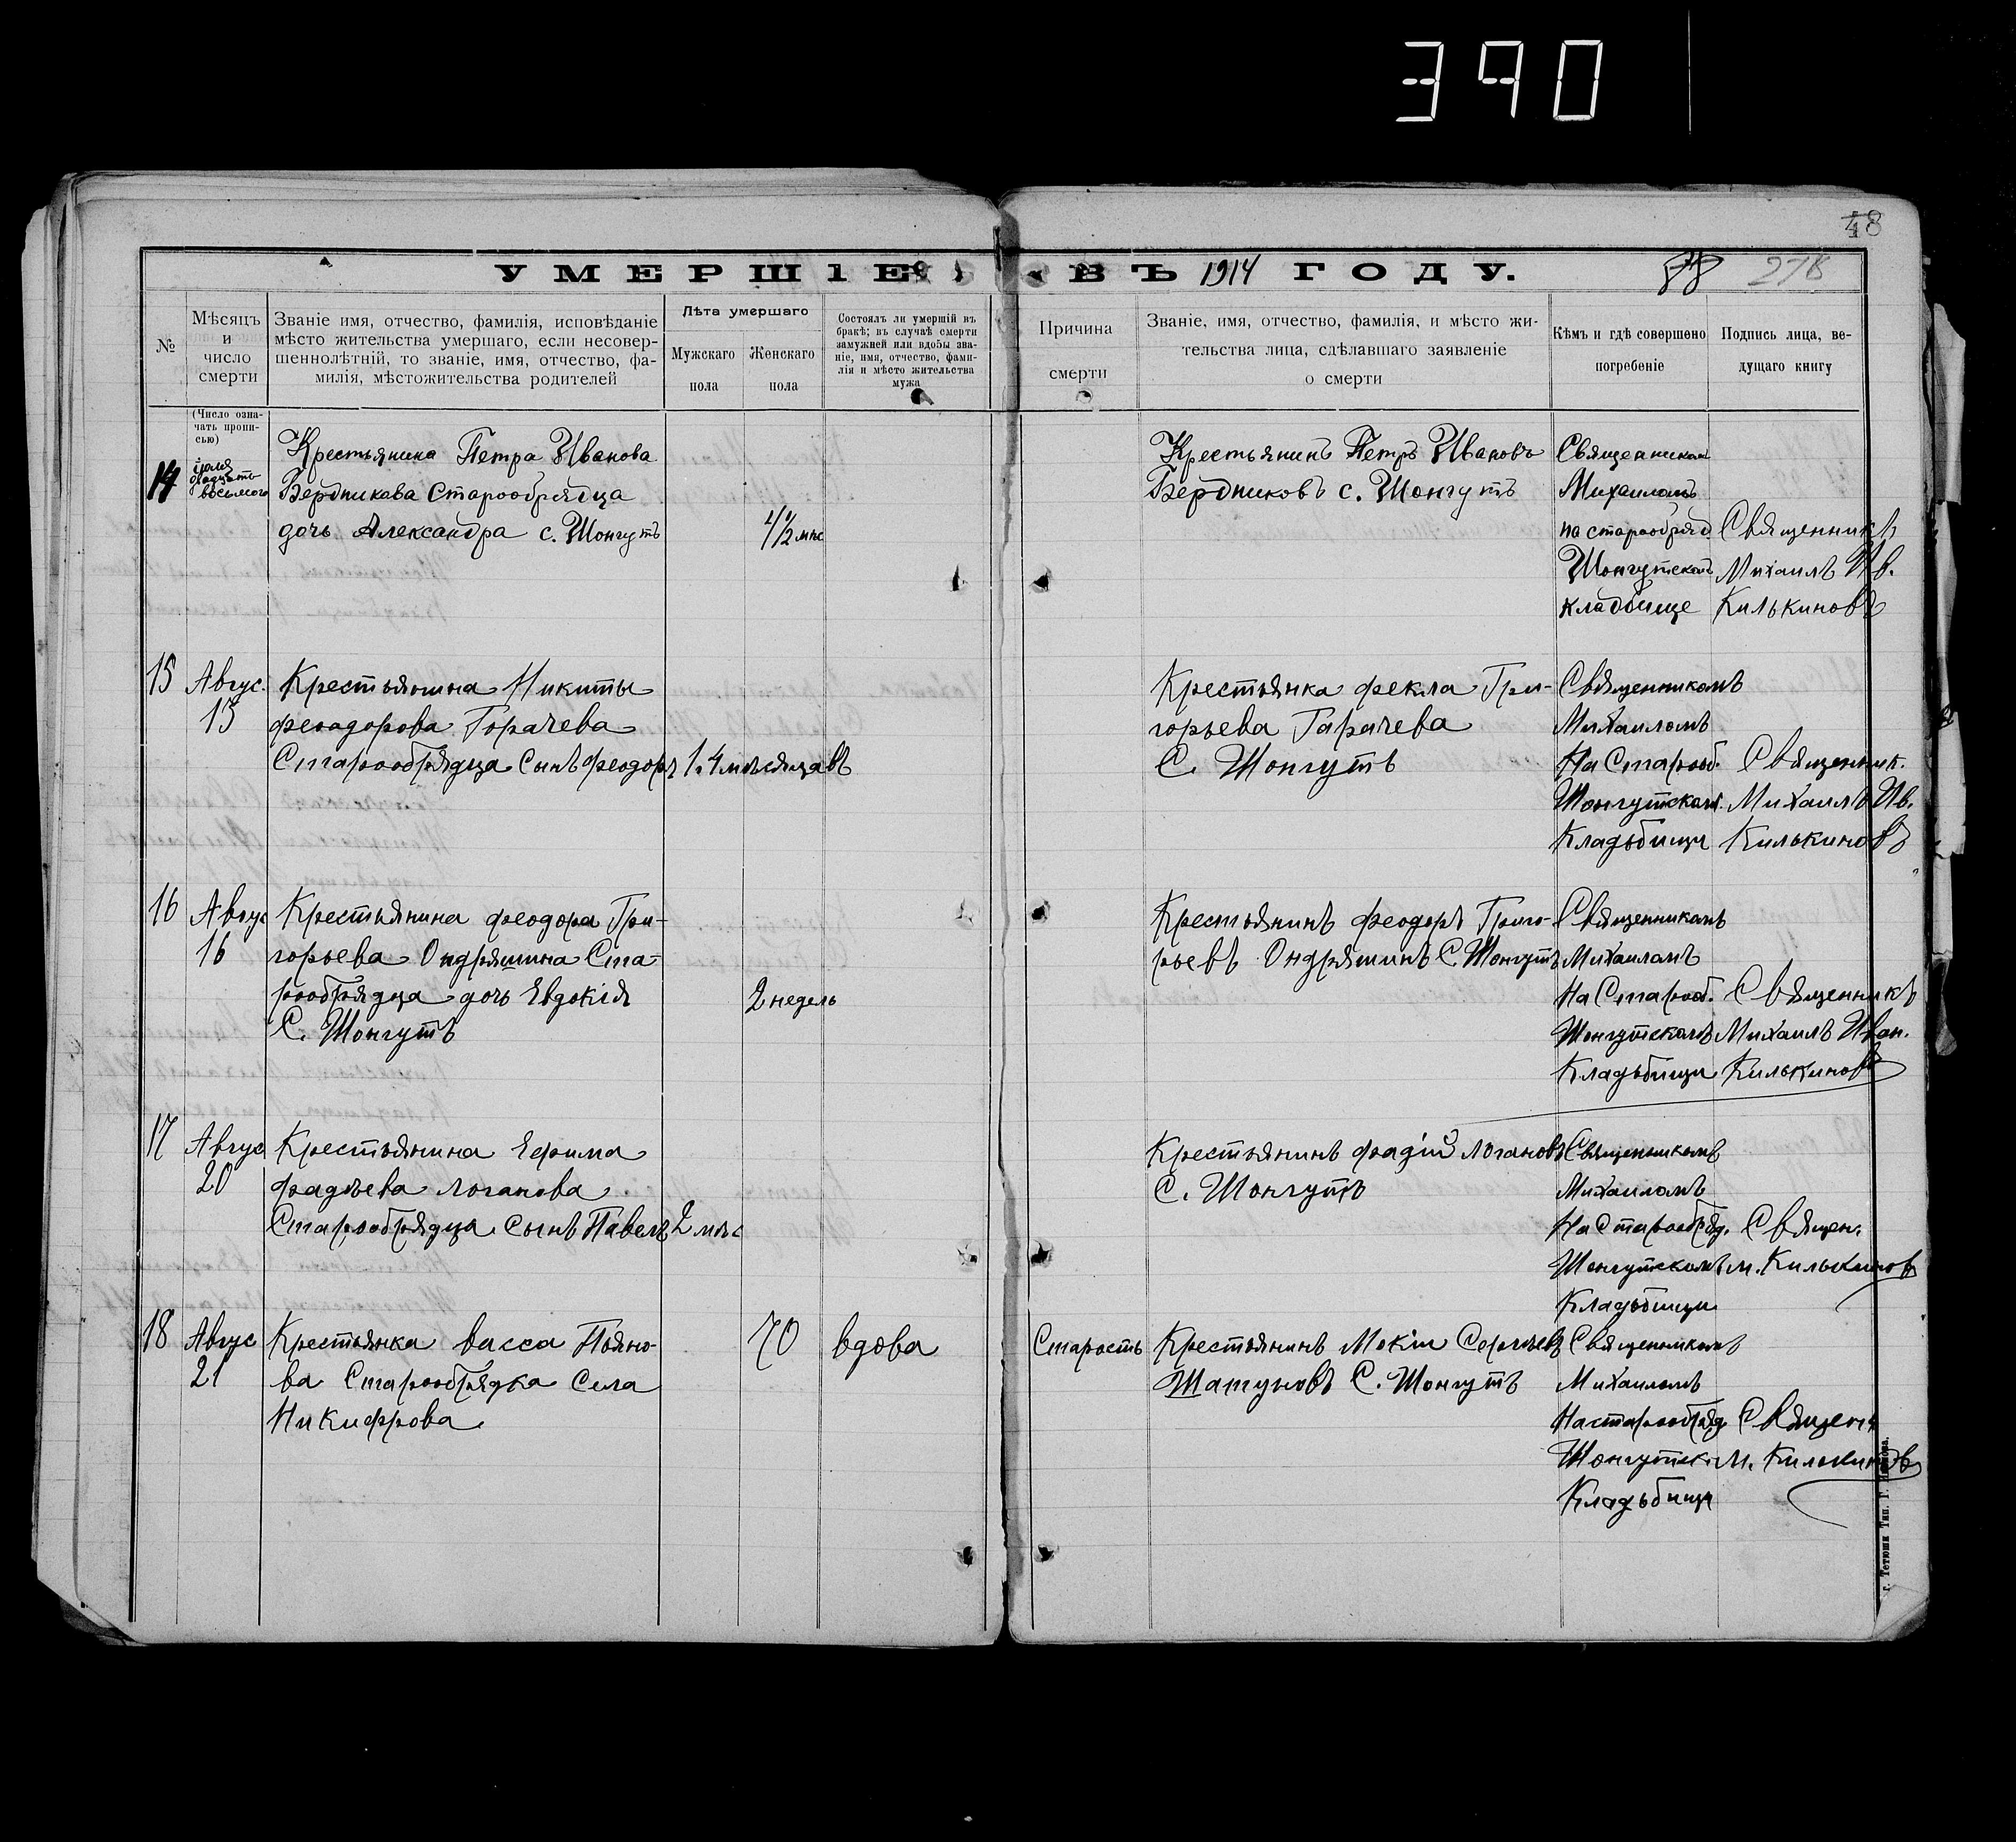 390
48
УМЕРШІЕ ВЪ 1914 ГОДУ.
88 278
№
Мѣсяцъ и число смерти
Званіе имя, отчество, фамилія, исповѣданіе
мѣсто жительства умершаго, если несовер-
шеннолѣтній, то званіе, имя, отчество, фа-
милія, мѣстожительства родителей
Лѣта умершаго
Мужскаго пола
Женскаго пола
Состоялъ ли умершій въ
бракѣ; въ случаѣ смерти
замужней или вдовы зва-
ніе, имя, отчество, фами-
лія и мѣсто жительства
мужа
Причина смерти
Званіе, имя, отчество, фамилія, и мѣсто жи-
тельства лица, сдѣлавшаго заявленіе
о смерти
Кѣмъ и гдѣ совершено
погребеніе
Подпись лица, ве-
дущаго книгу
(Число озна-
чать пропи-
сью)
14
іюля
двадцать
восьмого
Крестьянина Петра Иванова
Бердникова Старообрядца
дочь Александра с. Шонгутъ
4½ мѣс
Крестьянинъ Петръ Ивановъ
Бердниковъ с. Шонгутъ
Священником
Михаиломъ
на старообряд
Шонгутскомъ
кладбище
Священникъ
Михаилъ Ив.
Килькиновъ
15
Авгус.
15
Крестьянина Никиты
Феодорова Горачева
Старообрядца Сынъ Феодоръ
1. 4 мѣсяцавъ
Крестьянка Фекла Гри-
горьева Гарачева
С. Шонгутъ
Священникомъ
Михаиломъ
На Старооб.
Шонгутском.
Кладьбищи
Священник.
Михаилъ Ив.
Килькиновъ
16
Авгус
16
Крестьянина Феодора Гри-
горьева Ондряшина Ста-
рообрядца дочь Евдокія
С. Шонгутъ
2 недель
Крестьянинъ Феодоръ Григо-
рьевъ Ондряшинъ С. Шонгутъ
Священникомъ
Михаиломъ
На Старооб.
Шонгутскомъ
Кладьбищи
Священникъ
Михаилъ Иван.
Килькиновъ
17
Авгус
20
Крестьянина Ефима
Фадѣева Логанова
Старообрядца Сынъ Павелъ
2 мѣс
Крестьянинъ Фадій Логановъ
С. Шонгутъ
Священникомъ
Михаиломъ
На Старообряд.
Шонгутскомъ
Кладьбищи
Священ.
м. Килькинов
18
Авгус
21
Крестьянка Васса Пьяно-
ва Старообрядка Села
Никифрова
70
вдова
Старость
Крестьянинъ Мокіи Сергѣевъ
Шатуновъ С. Шонгутъ
Священникомъ
Михаиломъ
На старообряд
Шонгутск.
Кладьбищи
Священ
М. Килькинов
г. Тетюши Тип. Г.